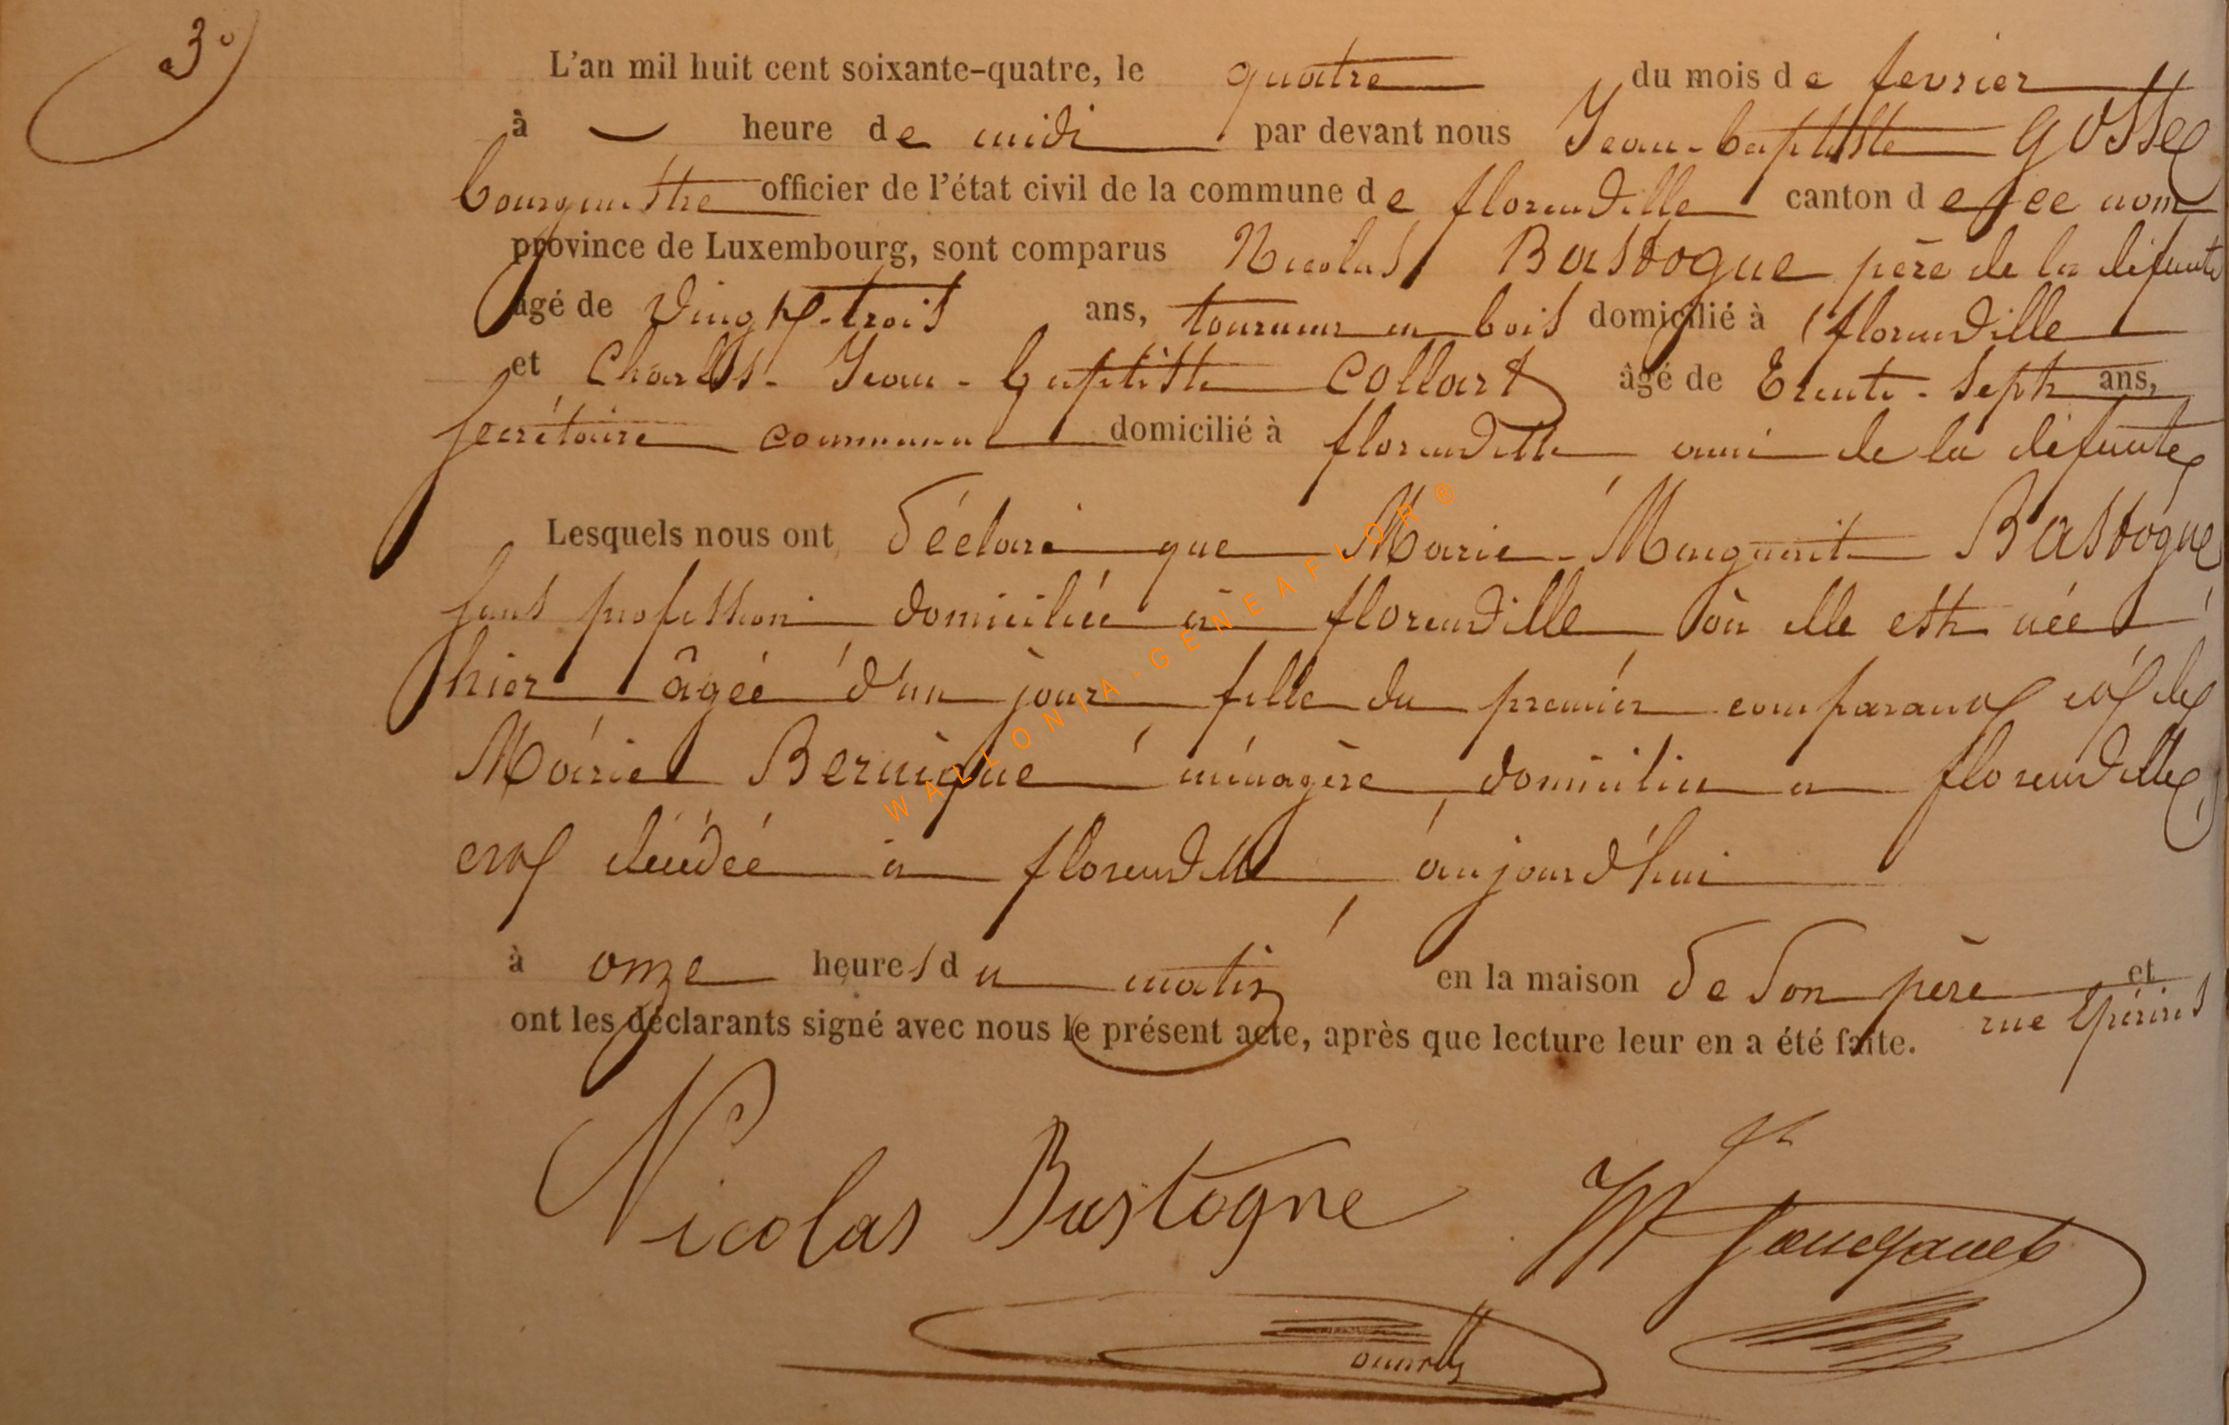 3°
L'an mil huit cent soixante-quatre, le quatre du mois de fevrier
à heure de midi par devant nous Jean-baptiste GOSSE
bourgmestre officier de l'état civil de la commune de florenville canton de ce nom
province de Luxembourg, sont comparus Nicolas Bastogne père de la défunte
âgé de vingt-trois ans, tourneur en bois domicilié à florenville
et Charles-Jean-baptiste Collart âgé de trente-sept ans,
secrétaire communal domicilié à florenville ami de la défunte
Lesquels nous ont déclaré que Marie-Marguerite Bastogne
sans profession domiciliée à florenville où elle est née
hier âgée d'un jour fille du premier comparant et de
Marie Bernique ménagère domiciliée à florenville
est décédée à florenville aujourd'hui
à onze heures du matin en la maison de son père et
rue
ont les déclarants signé avec nous le présent acte, après que lecture leur en a été faite.
Nicolas Bastogne
WALLONIA-GENEAFLOR®